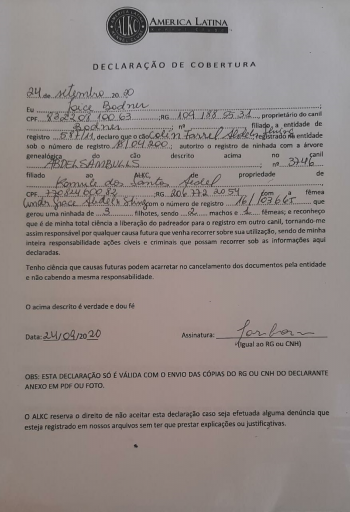 ALKC
AMERICA LATINA
DECLARAÇÃO DE COBERTURA
24 de setembro 20 20
Eu Joice Bodner
CPF 822203100 63 RG 109 188 95 31 proprietário do canil
Bodner nº filiado a entidade de
registro 58711, declaro que o cão registrado na entidade
sob o número de registro 18/04200; autorizo o registro de ninhada com a árvore
genealógica do cão descrito acima no canil
nº 3746
filiado ao ALKC, de propriedade de
dos Santos
CPF RG 206 772 2054 com a fêmea
com o número de registro que
gerou uma ninhada de 3 filhotes, sendo 2 machos e 1 fêmeas; e reconheço
que é de minha total ciência a liberação do padreador para o registro em outro canil, tornando-me
assim responsável por qualquer causa futura que venha recorrer sobre sua utilização, sendo de minha
inteira responsabilidade ações cíveis e criminais que possam recorrer sob as informações aqui
declaradas.
Tenho ciência que causas futuras podem acarretar no cancelamento dos documentos pela entidade
e não cabendo a mesma responsabilidade.
O acima descrito é verdade e dou fé
Data: 24/09/2020 Assinatura:
(igual ao RG ou CNH)
OBS: ESTA DECLARAÇÃO SÓ É VÁLIDA COM O ENVIO DAS CÓPIAS DO RG OU CNH DO DECLARANTE
ANEXO EM PDF OU FOTO.
O ALKC reserva o direito de não aceitar esta declaração caso seja efetuada alguma denúncia que
esteja registrado em nossos arquivos sem ter que prestar explicações ou justificativas.